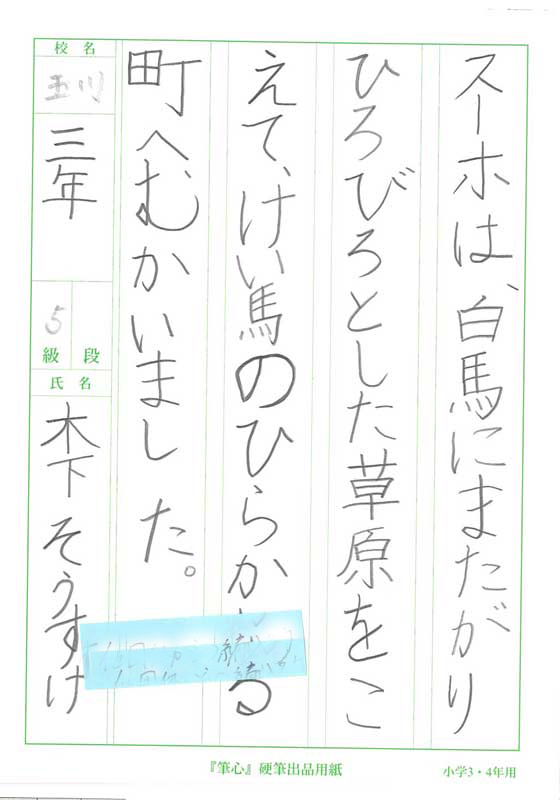 スーホは、白馬にまたがり
ひろびろとした草原をこ
えて、けい馬のひらか る
町へむかいました。
校名
玉川
三年
5
級 段
氏名
木下そうすけ
『筆心』硬筆出品用紙
小学3・4年用